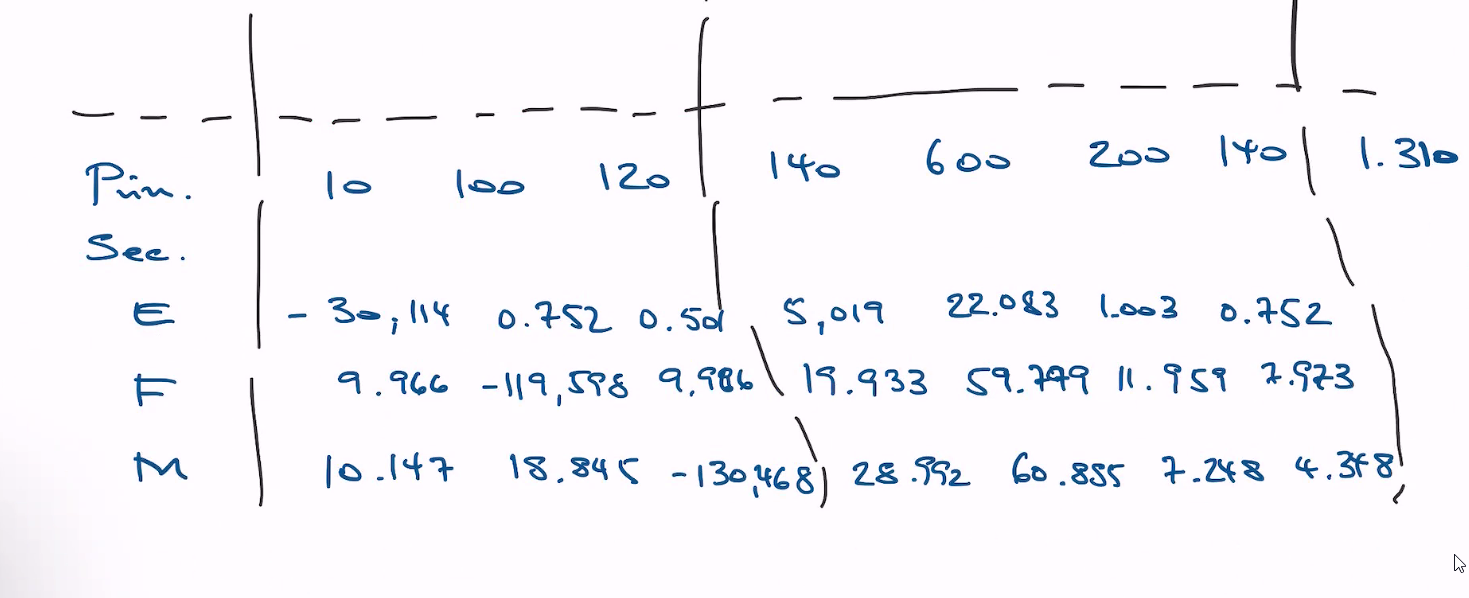 Prim. 10 100 120 140 600 200 140 1.310
Sec.
E - 30,114 0.752 0.501 5,019 22.083 1.003 0.752
F 9.966 -119,598 9,966 19.933 59.799 11.959 7.973
M 10.147 18.845 -130,468 28.992 60.885 7.248 4.348